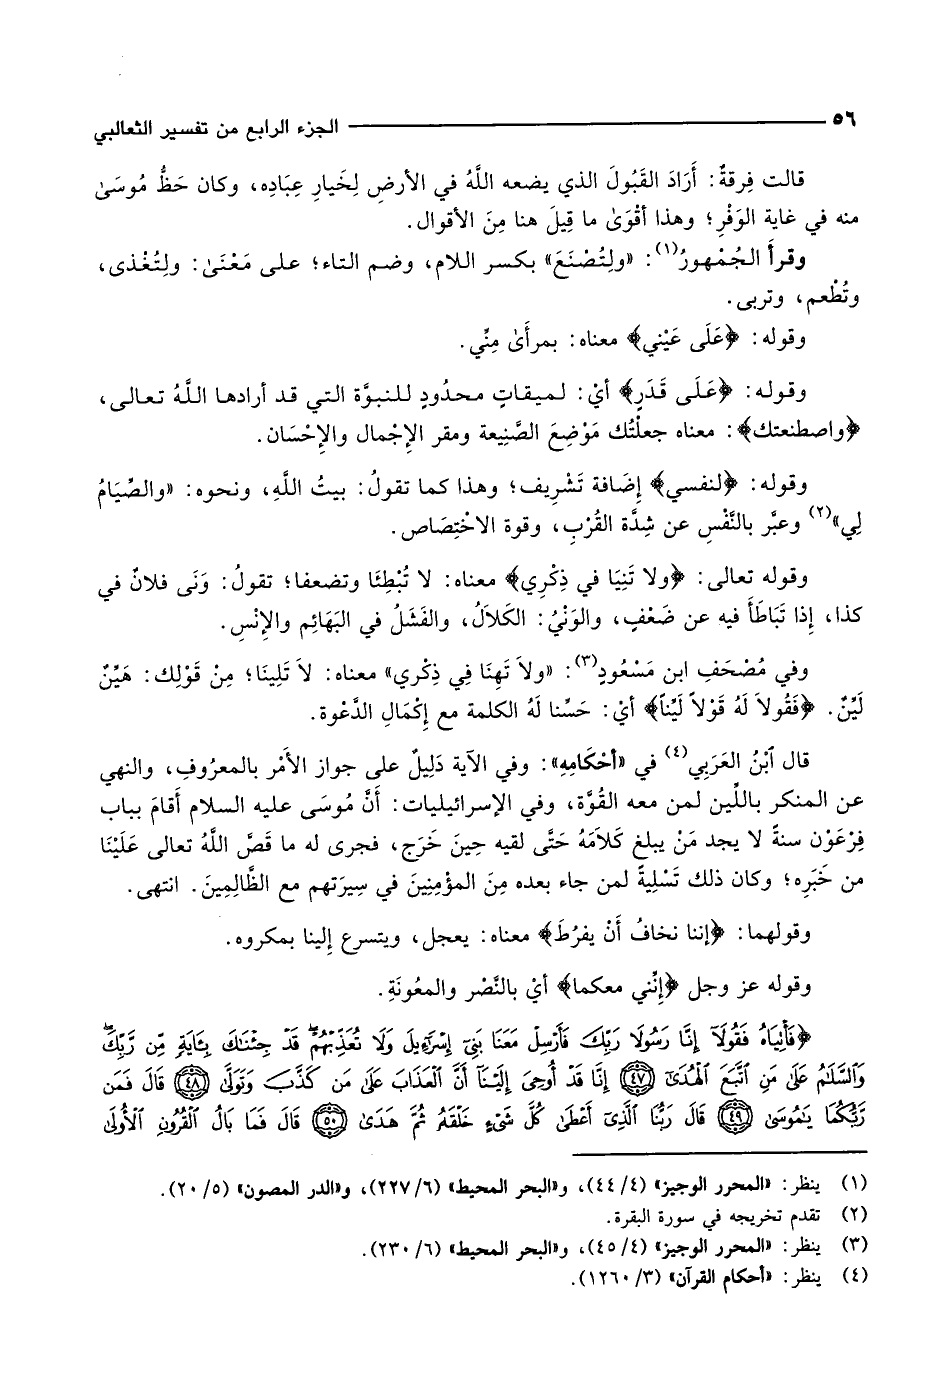 ٥٦ ـــــــــ الجزء الرابع من تفسير الثعالبي
قالت فِرقةٌ: أَرَادَ القَبُولَ الذي يضعه اللَّهُ في الأرضِ لِخَيارِ عِبَادِه، وكان حَظُّ مُوسَىٰ
منه في غاية الوَفْرِ؛ وهذا أقْوَىٰ ما قِيلَ هنا مِنَ الأقوال.
وقرأ الجُمْهورُ(١): «ولِتُصْنَعَ» بكسر اللام، وضم التاء؛ على مَعْنَىٰ: ولِتُغْذى،
وتُطْعم، وتربى.
وقوله: ﴿عَلَى عَيْني﴾ معناه: بمرأَىٰ مِنِّي.
وقوله: ﴿عَلَى قَدَرٍ﴾ أيْ: لميقاتٍ محدُودٍ للنبوَّة التي قد أرادها اللَّهُ تعالى،
﴿واصطنعتك﴾: معناه جعلْتُك مَوْضِعَ الصَّنِيعة ومقر الإجْمال والإحْسَان.
وقوله: ﴿لنفسي﴾ إضَافة تَشْرِيف؛ وهذا كما تقولُ: بيتُ اللَّهِ، ونحوه: «والصِّيَامُ
لِي»(٢) وعبَّر بالنَّفْسِ عن شِدَّة القُرْبِ، وقوة الاخْتِصَاص.
وقوله تعالى: ﴿ولا تَنِيَا في ذِكْرِي﴾ معناه: لا تُبْطِئَا وتضعفا؛ تقولُ: وَنَى فلانٌ في
كذا، إِذا تَبَاطَأَ فيه عن ضَعْفٍ، والوَنْيُ: الكَلاَلُ، والفَشَلُ في البَهَائِم والإِنْسِ.
وفي مُصْحَفِ ابن مَسْعُودٍ(٣): «ولاَ تَهِنَا فِي ذِكْرِي» معناه: لاَ تَلِينَا؛ مِنْ قَوْلِك: هَيِّنٌ
لَيِّنٌ. ﴿فَقُولاَ لَهُ قَوْلاً لَيِّناً﴾ أيْ: حَسِّنا لَهُ الكلمة مع إكْمَالِ الدَّعْوة.
قال ٱبْنُ العَرَبِي(٤) في «أحْكَامِهِ»: وفي الآية دَلِيلٌ على جواز الأمْر بالمعرُوفِ، والنهي
عن المنكر باللِّين لمن معه القُوَّة، وفي الإسرائيليات: أنَّ مُوسَى عليه السلام أقَامَ بباب
فِرْعَوْن سنةً لا يجد مَنْ يبلغ كَلاَمَهُ حَتَّى لقيه حِينَ خَرَج، فجرى له ما قَصَّ اللَّهُ تعالى عَلَيْنَا
من خَبَرِه؛ وكان ذلك تَسْلِيةً لمن جاء بعده مِنَ المؤْمِنِينَ في سِيرَتهم مع الظَّالِمِينَ. انتهى.
وقولهما: ﴿إننا نخافُ أَنْ يفرُطَ﴾ معناه: يعجل، ويتسرع إلينا بمكروه.
وقوله عز وجل ﴿إنَّني معكما﴾ أيْ بالنَّصْر والمعُونَةِ.
﴿فَأْتِيَاهُ فَقُولَآ إِنَّا رَسُولَا رَبِّكَ فَأَرْسِلْ مَعَنَا بَنِىٓ إِسْرَٰٓءِيلَ وَلَا تُعَذِّبْهُمْۖ قَدْ جِئْنَٰكَ بِـَٔايَةٍ مِّن رَّبِّكَۖ
وَٱلسَّلَٰمُ عَلَىٰ مَنِ ٱتَّبَعَ ٱلْهُدَىٰٓ (٤٧) إِنَّا قَدْ أُوحِىَ إِلَيْنَآ أَنَّ ٱلْعَذَابَ عَلَىٰ مَن كَذَّبَ وَتَوَلَّىٰ (٤٨) قَالَ فَمَن
رَّبُّكُمَا يَٰمُوسَىٰ (٤٩) قَالَ رَبُّنَا ٱلَّذِىٓ أَعْطَىٰ كُلَّ شَىْءٍ خَلْقَهُۥ ثُمَّ هَدَىٰ (٥٠) قَالَ فَمَا بَالُ ٱلْقُرُونِ ٱلْأُولَىٰ
(١) ينظر: «المحرر الوجيز» (٤/٤٤)، و«البحر المحيط» (٦/٢٢٧)، و«الدر المصون» (٥/٢٠).
(٢) تقدم تخريجه في سورة البقرة.
(٣) ينظر: «المحرر الوجيز» (٤/٤٥)، و«البحر المحيط» (٦/٢٣٠).
(٤) ينظر: «أحكام القرآن» (٣/١٢٦٠).